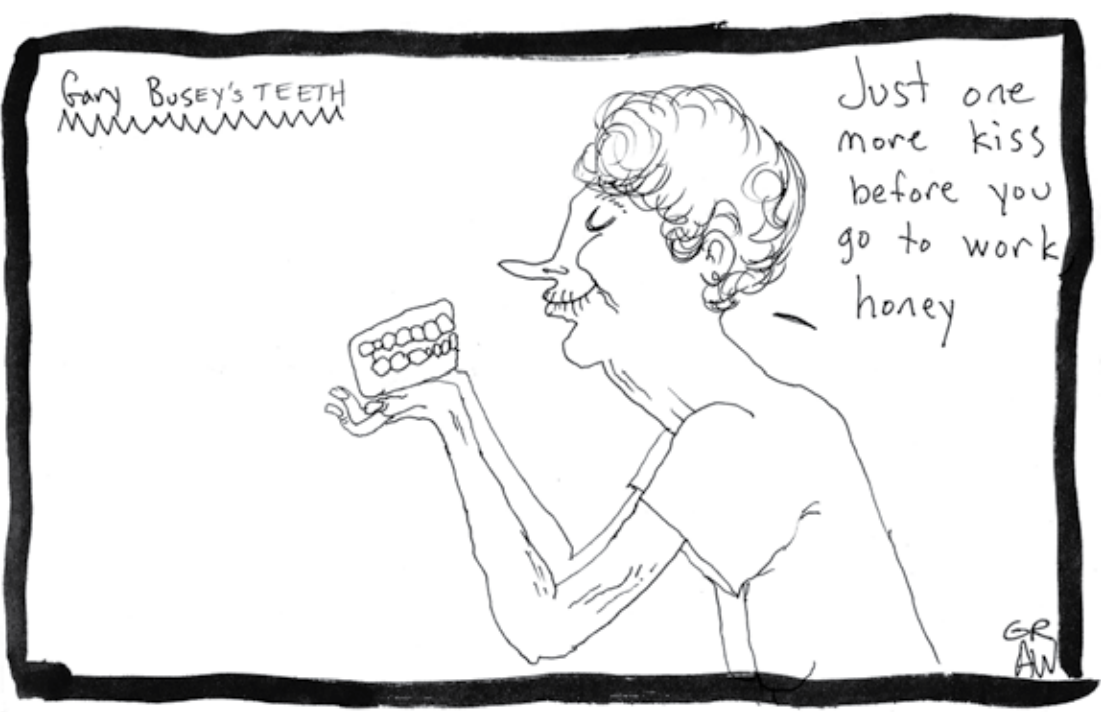 Gary BUSEY'S TEETH
Just one
more kiss
before you
go to work
honey
GR
AW